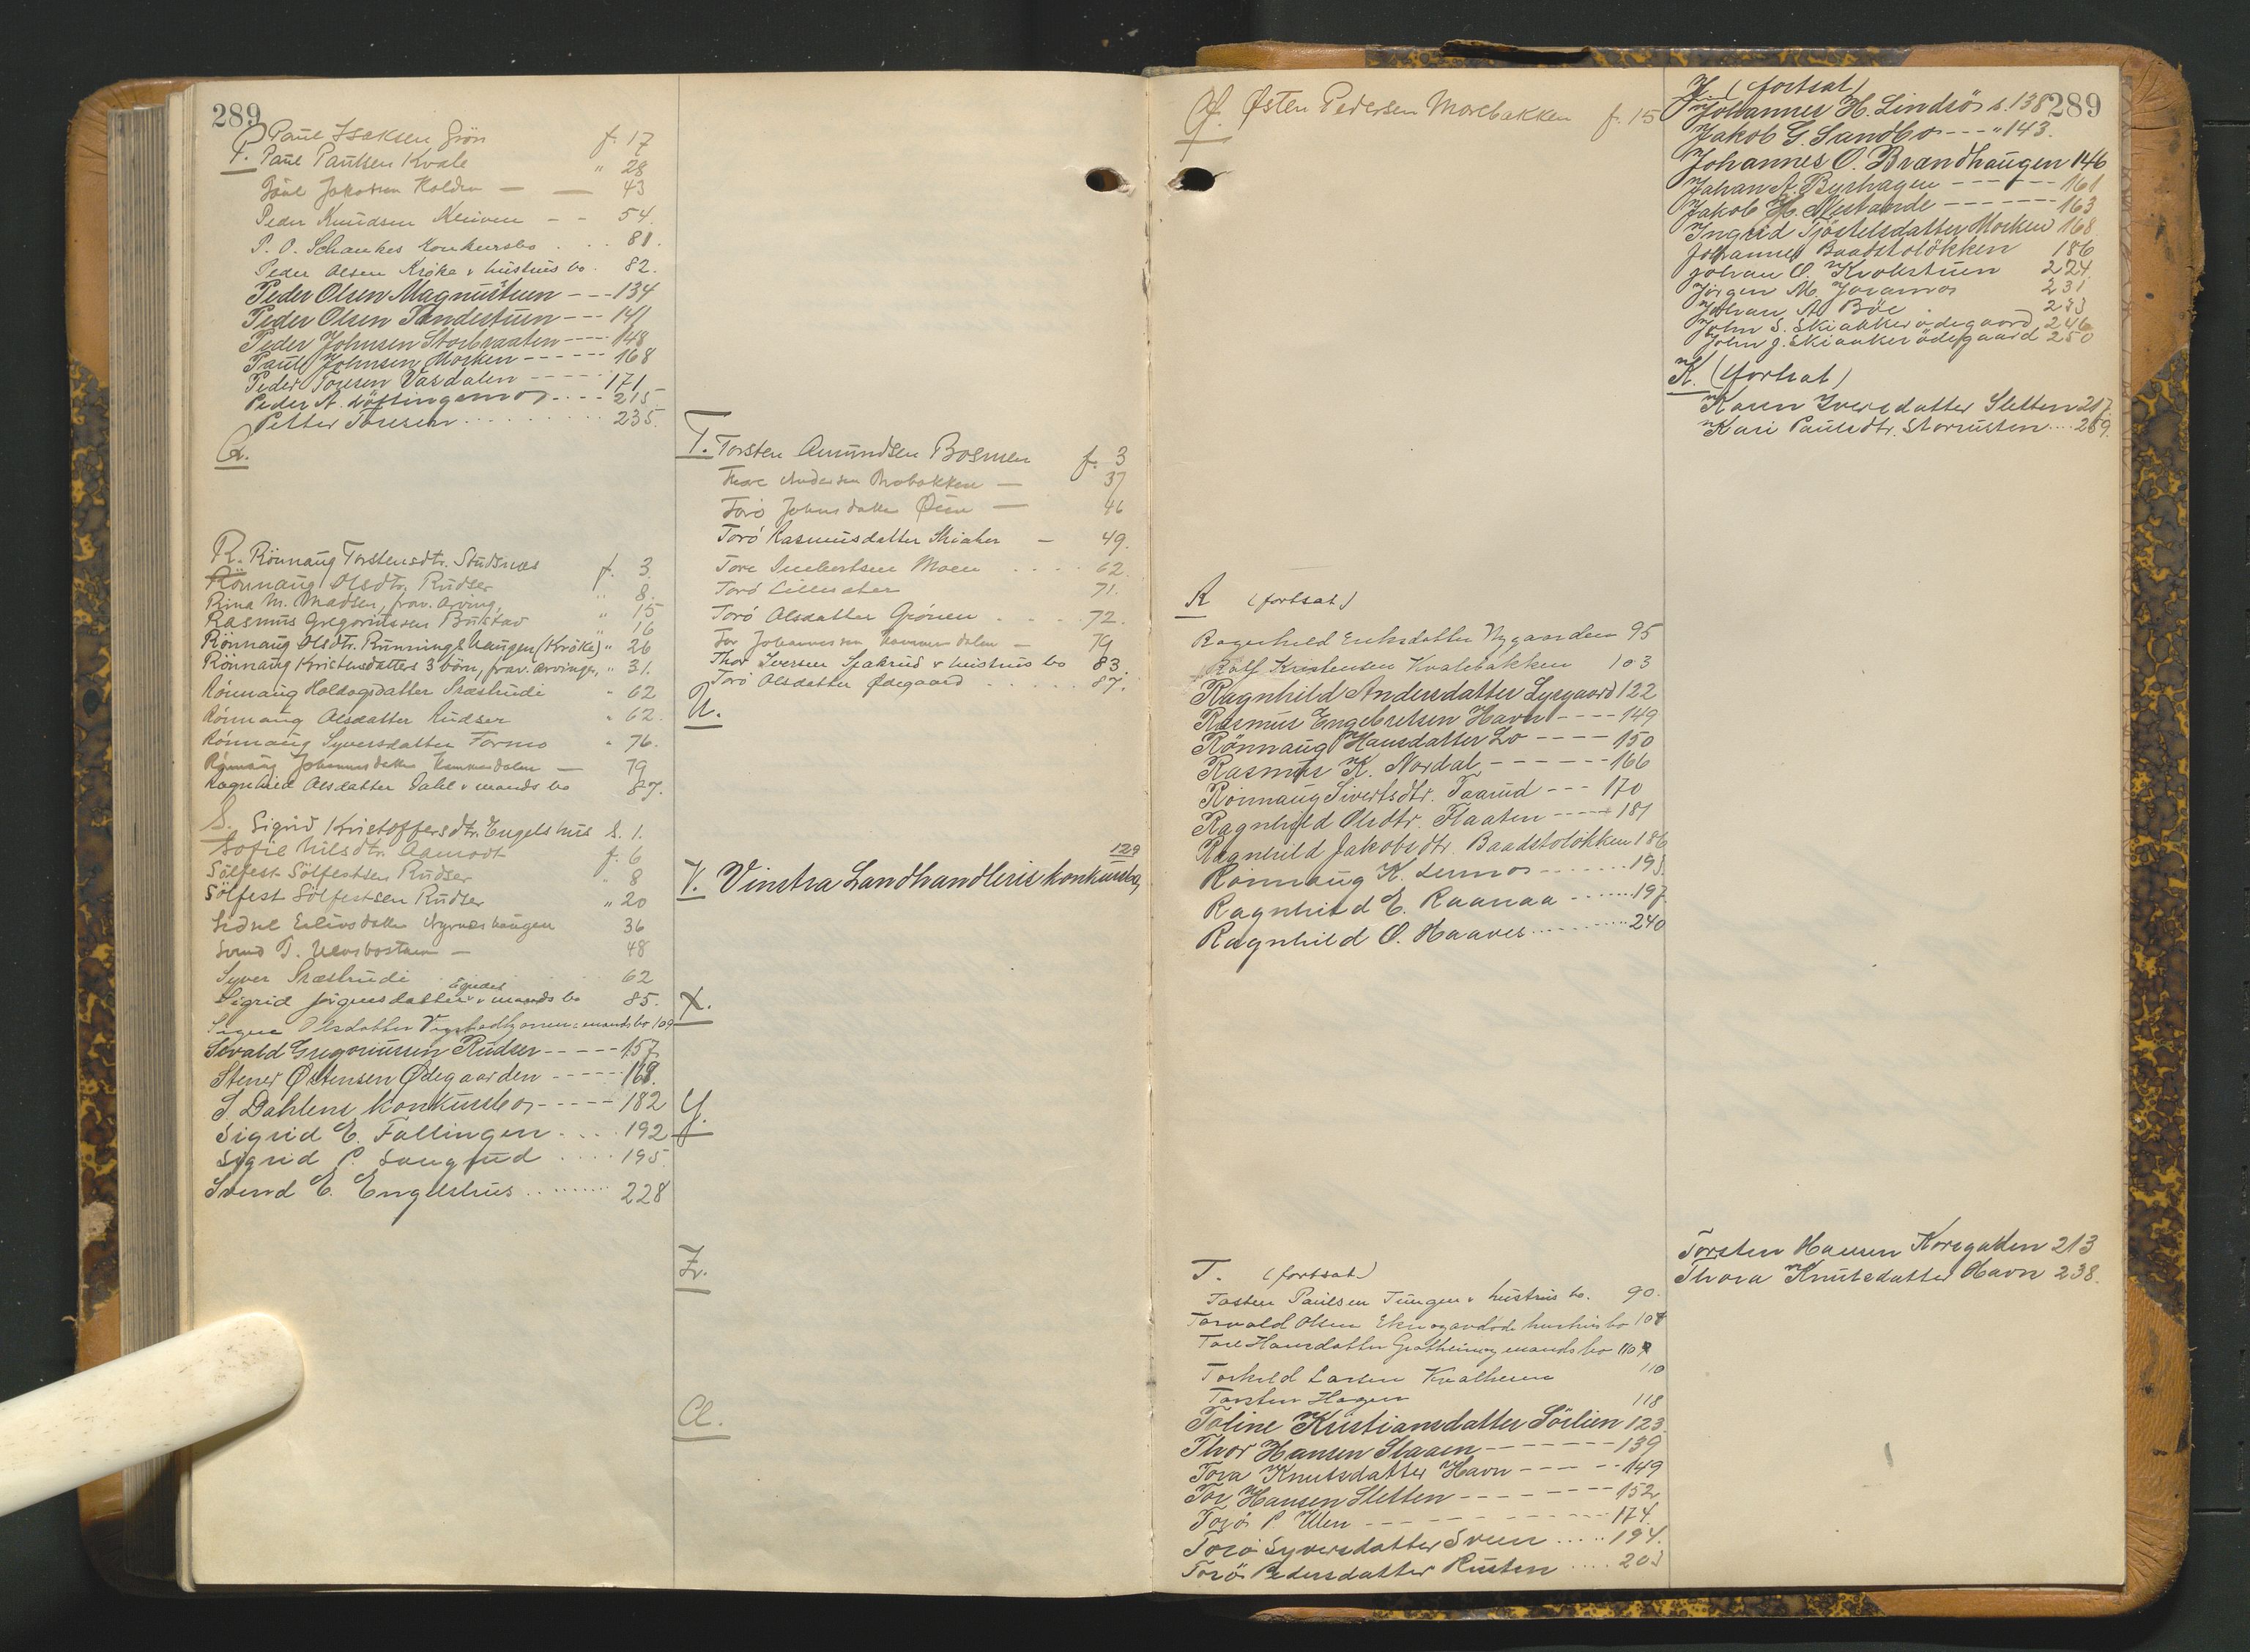 289
P. Paul Isaksen Grön f. 17
Paul Paulsen Kvale " 28
Paul Jakobsen Holden — — 43
Peder Knudsen Kleiven - - 54.
P. O. Schankes Konkursbo . . . 81.
Peder Olsen Kröke & hustrus bo. 82.
Peder Olsen Magnustuen - - - 134
Peder Olsen Sandestuen - - - 141
Peder Johnsen Storbraaten - - - 148
Paul Johnsen Morken - - - - - - 168
Peder Toresen Vasdalen - - - - - 171
Peder A. Löftingsmo . . . . 215.
Petter Toresen . . . . . . . . 235.
Q.
R. Rönnaug Torstensdtr. Studsnæs f. 3.
Rönnaug Olsdtr. Rudser " 8.
Rina M. Madsen, frav. arving, " 15
Rasmus Gregoriussen Bukstad " 16
Rönnaug Olsdtr. Runningshaugen (Kröke) " 26
Rönnaug Kristensdatters 3 börn, frav. arvinger, " 31.
Rönnaug Holdogsdatter Præstrudi " 62
Rönnaug Olsdatter Rudser " 62.
Rönnaug Syversdatter Formo " 76.
Rönnaug Johannesdatter Hammerdalen — 79
Ragnhild Olsdatter Dahl & mands bo 87.
S. Sigrid Kristoffersdtr. Engelshus s. 1.
Sofie Nilsdtr. Aamodt f. 6
Sölfest Sölfestsen Rudser " 8
Sölfest Sölfestsen Rudser " 20
Sidsel Eilivsdatter Nyrnæshaugen 36
Svend T. Ulvsbostuen — 48
Syver Præstrudi . . . . 62
Sigrid Jörgensdatter & mands bo 85.
Signe Olsdatter mands bo 109
Sevald Gregoriussen Rudser - - - - - 157
Stener Østensen Ødegaarden - - - - - 168.
S. Dahlens Konkursbo - - - - - 182
Sigrid E. Fallingen . . . . 192
Sigrid P. Laugrud . . . . 195.
Svend E. Engelshus . . . . . . . . . 228
T. Torsten Amundsen Boemen f. 3
Thore Andersen Mobakken — 37
Torö Johnsdatter Øien — 46
Torö Rasmusdatter Skiaker — 49.
Tore Moen . . . . 62.
Torö Lillesæter 71.
Torö Olsdatter Grönen . . . . 72.
Tor Johannessen Hammerdalen — 79
Thor Iversen Sparrud & hustrus bo 83.
Torö Olsdatter Ødegaard . . . . . 87.
U.
129
V. Vinstra Landhandleris konkursbo,
X.
Y.
Z.
Æ.
Ø. Østen Pedersen Morebakken f. 15
R (fortsat)
Ragnhild Eriksdatter Nygaarden 95
Rolf Kristensen Kvalebakken 103
Ragnhild Andersdatter Lysgaard 122
Rasmus Engebretsen Havn - - - - 149
Rönnaug Hansdatter Lo - - - - 150
Rasmus K. Nordal - - - - - - - 166
Rönnaug Sivertsdtr. Taarud - - - 170
Ragnhild Olsdtr. Flaaten - - - - 181
Ragnhild Jakobsdtr. Baadstolökken 186
Rönnaug K. Lermo . . . . . . . 193.
Ragnhild E. Raanaa . . . . . . . 197.
Ragnhild O. Haaves . . . . . . . . . . 240
T. (fortsat)
Tosten Paulsen Tungen & hustrus bo. 90.
Torvald Olsen hustrus bo 108
Tore Hansdatter mands bo 109
Torkild Larsen Kvalheim 110
Torsten Hagen 118
Toline Kristiansdatter Sörlien 123
Thor Hansen Staaen - - - - - - - 139
Tora Knutsdatter Havn - - - - - 149
Tor Hansen Sletten - - - - - - - - 152
Torö P. Ulen - - - - - - - - - - - 174.
Torö Syversdatter Sveen . . . . . 194.
Torö Pedersdatter Rusten . . . . 203
J. (fortsat) 289
Johannes H. Lindsö s. 138
Jakob G. Sandbo - - - " 143.
Johannes O. Brandhaugen 146
Johan A. Byrhagen - - - - - - - 161
Jakob H. Nustande - - - - - - - 163
Ingrid Tjöstelsdatter Morken 168
Johannes Baadstolökken 186
Johan O. Krokstuen 224.
Jörgen M. Joramo 231
Johan A. Böe . 233
John S. Skiakker ödegaard 246
John J. Skiaaker ödegaard 250
K. (fortsat)
Karen Iversdatter Sletten 217.
Kari Paulsdtr. Storrusten . . . . 269.
Torsten Hansen Korsgatden 213
Thora Knutsdatter Havn 238.